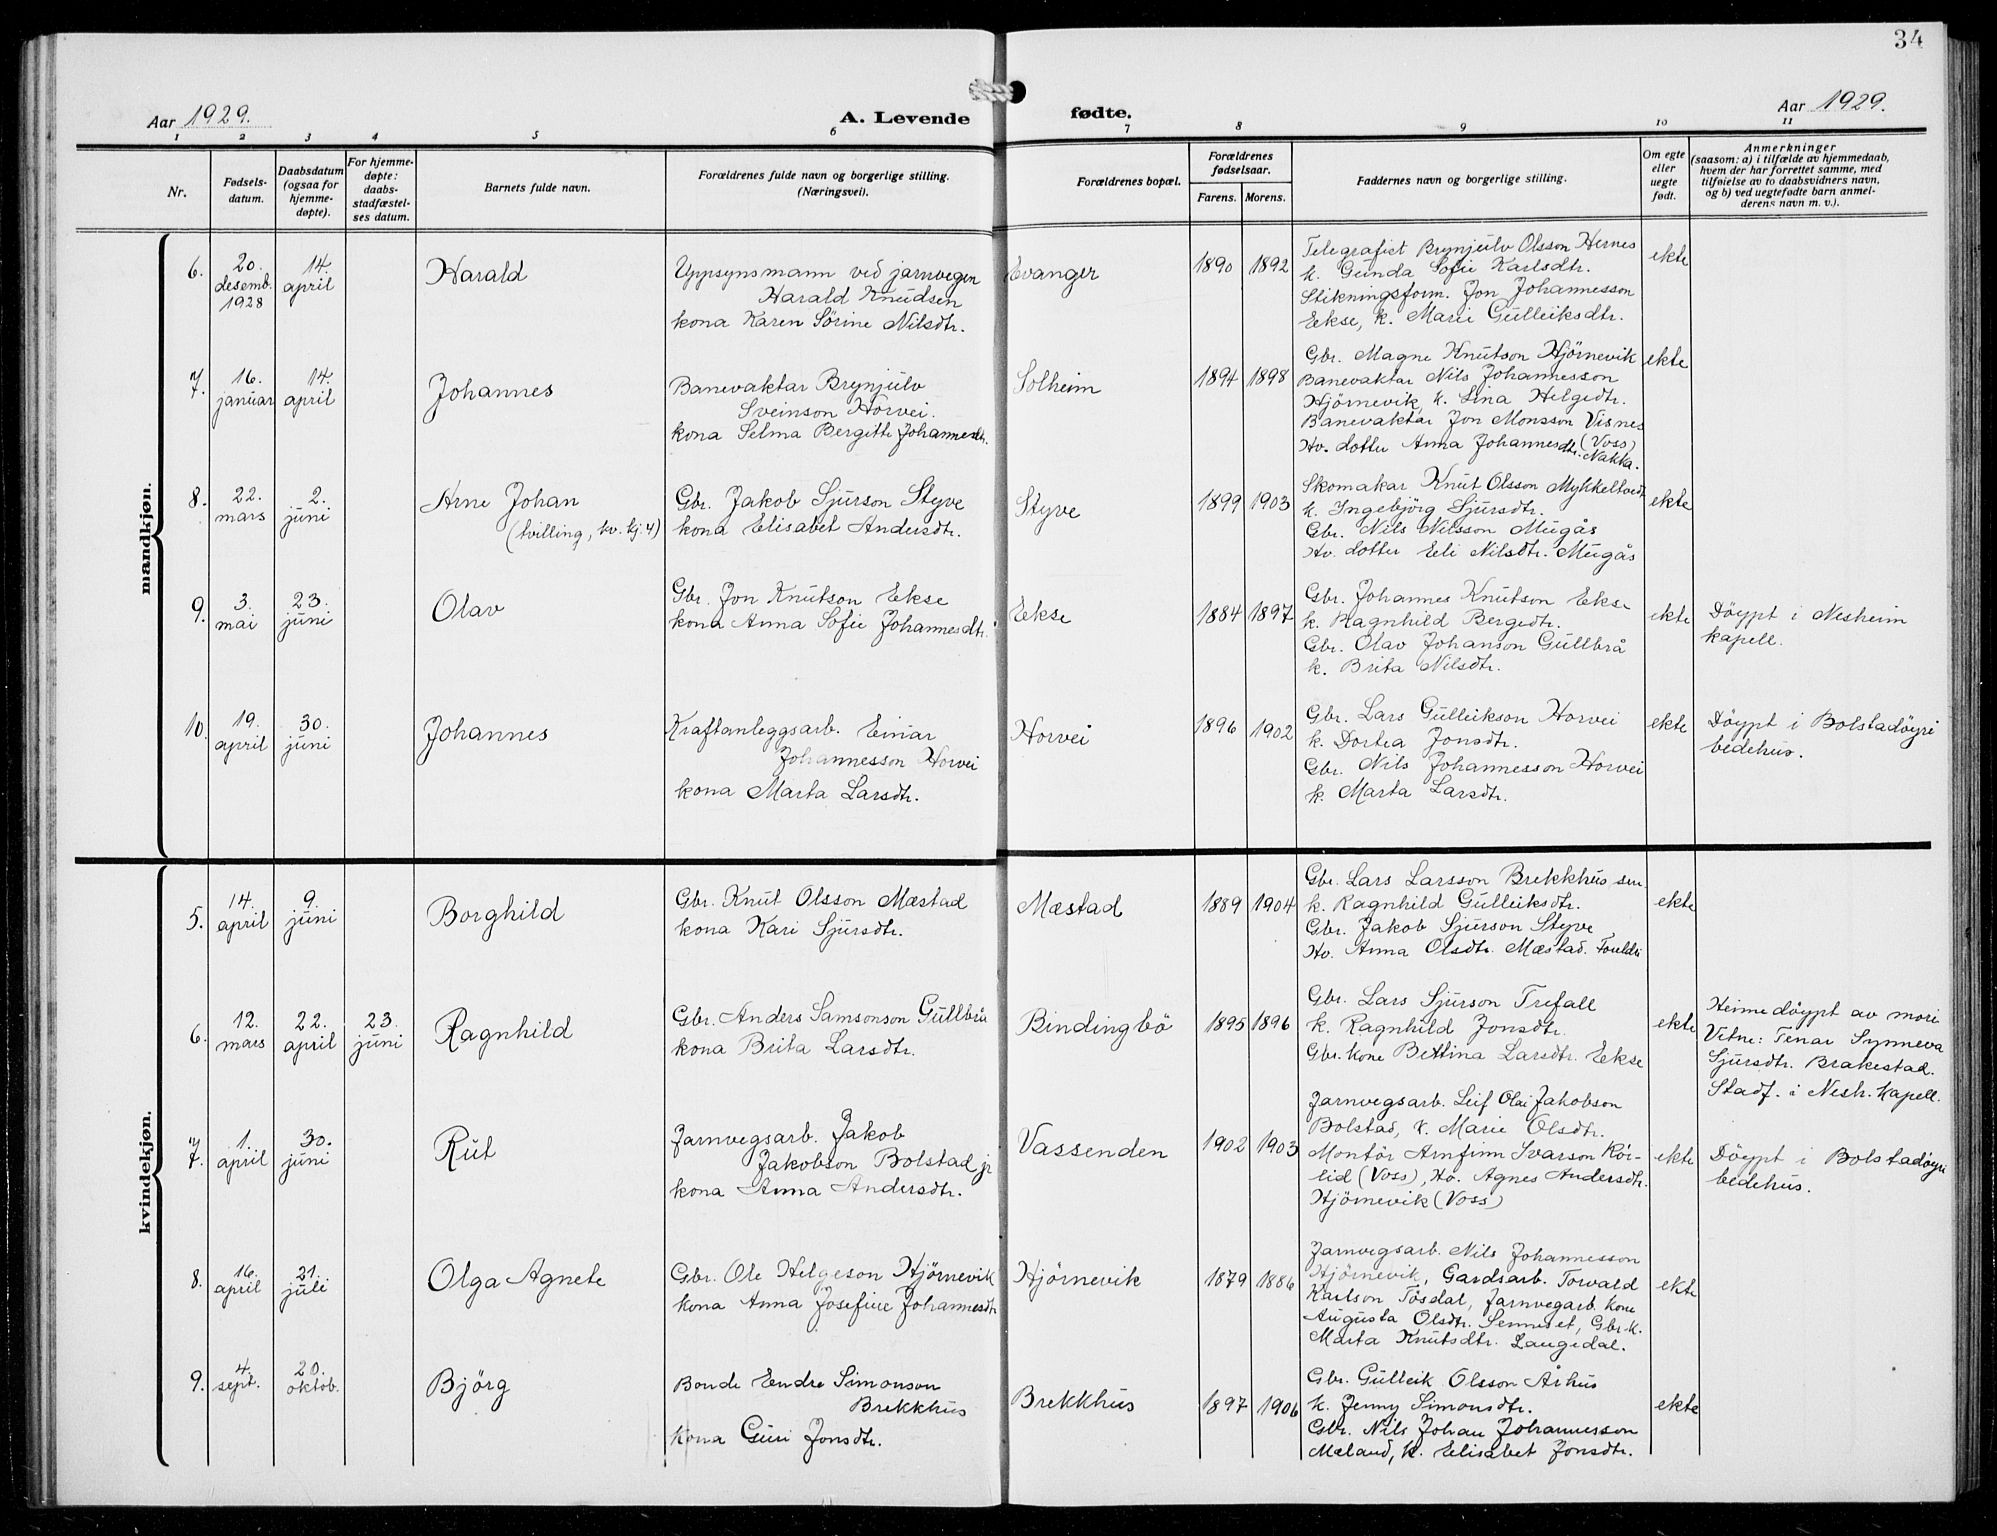 34
Aar 1929.
A. Levende fødte.
Aar 1929.
1 2 3 4 5 6 7 8 9 10 11
Nr.
Fødsels-
datum.
Daabsdatum
(ogsaa for
hjemme-
døpte).
For hjemme-
døpte:
daabs-
stadfæstel-
ses datum.
Barnets fulde navn.
Forældrenes fulde navn og borgerlige stilling.
(Næringsvei).
Forældrenes bopæl.
Forældrenes
fødselsaar.
Farens. Morens.
Faddernes navn og borgerlige stilling.
Om egte
eller
uegte
født.
Anmerkninger
(saasom: a) i tilfælde av hjemmedaab,
hvem der har forrettet samme, med
tilføielse av to daabsvidners navn,
og b) ved uegtefødte barn anmel-
derens navn m. v.).
mandkjøn.
6.
20.
desemb.
1928
14.
april
Harald
Uppsynsmann ved jarnvegen
Harald Knudsen
kona Karen Sørine Nilsdtr.
Evanger
1890 1892
Telegrafist Brynjulv Olsson Hernes
k. Gunda Sofie Karlsdtr.
Stikningsform. Jon Johannesson
Eekse, k. Marie Gulleiksdtr.
ekte
7.
16.
januar
14.
april
Johannes
Banevaktar Brynjulv
Sveinson Horvei.
kona Selma Bergitte Johannesdtr.
Solheim
1894 1898
Gbr. Magne Knutson Hjörnevik
Banevaktar Nils Johannesson
Hjörnevik, k. Lina Helgedtr.
Banevaktar Jon Monsson Visnes
(Voss)
Ho. dotter Anna Johannesdtr. Nakka.
ekte
8.
22.
mars
2.
juni
Arne Johan
(tvilling, kv. kj. 4)
Gbr. Jakob Sjurson Styve
kona Elisabet Andersdtr.
Styve
1899 1903
Skomakar Knut Olsson Mykkeltvedt
k. Ingebjörg Sjursdtr.
Gbr. Nils Nilsson Mugås
Ho. dotter Eli Nilsdtr. Mugås
ekte
9.
3.
mai
23.
juni
Olav
Gbr. Jon Knutson Eekse
kona Anna Sofie Johannesdtr.
Eekse
1884 1897
Gbr. Johannes Knutson Eekse
k. Ragnhild Bergedtr.
Gbr. Olav Johanson Gullbrå
k. Brita Nilsdtr.
ekte
Döypt i Nesheim
kapell.
10.
19.
april
30.
juni
Johannes
Kraftanleggsarb. Einar
Johannesson Horvei
kona Marta Larsdtr.
Horvei
1896 1902
Gbr. Lars Gulleikson Horvei
k. Dortea Jonsdtr.
Gbr. Nils Johannesson Horvei
k. Marta Larsdtr.
ekte
Döypt i Bolstadöyri
bedehus.
kvindekjøn.
5.
14.
april
9.
juni
Borghild
Gbr. Knut Olsson Mæstad
kona Kari Sjursdtr.
Mæstad
1889 1904
Gbr. Lars Larsson Brekkhus sen.
k. Ragnhild Gulleiksdtr.
Gbr. Jakob Sjurson Styve
Ho. Anna Olsdtr. Mæstad.
ekte
6.
12.
mars
22.
april
23.
juni
Ragnhild
Gbr. Anders Samsonson Gullbrå
kona Brita Larsdtr.
Bindingbö
1895 1896
Gbr. Lars Sjurson Trefall
k. Ragnhild Jonsdtr.
Gbr. kone Bettina Larsdtr. Eekse
ekte
Heimedöypt av mori
Vitne: Tenar Synneva
Sjursdtr. Brakestad.
Stadf. i Nesh. kapell.
7.
1.
april
30.
juni
Rut
Jarnvegsarb. Jakob
Jakobson Bolstad jr
kona Anna Andersdtr.
Vassenden
1902 1903
Jarnvegsarb. Leif Olai Jakobson
Bolstad, k. Marie Olsdtr.
Montör Arnfinn Ivarson Rör-
lid (Voss), Ho. Agnes Andersdtr.
Hjörnevik (Voss)
ekte
Döypt i Bolstadöyri
bedehus.
8.
16.
april
21.
juli
Olga Agnete
Gbr. Ole Helgeson Hjörnevik
kona Anna Josefine Johannesdtr
Hjörnevik
1879 1886
Jarnvegsarb. Nils Johannesson
Hjörnevik, Gardsarb. Torvald
Karlson Tösdal, Jarnvegarb. kone
Augusta Olsdtr. Senneset, Gbr. k.
Marta Knutsdtr. Langedal.
ekte
9.
4.
sept.
20.
oktob.
Björg
Bonde Endre Simonson
Brekkhus
kona Guri Jonsdtr.
Brekkhus
1897 1906
Gbr. Gulleik Olsson Århus
k. Jenny Simonsdtr.
Gbr. Nils Johan Johannesson
Mæland, k. Elisabet Jonsdtr.
ekte